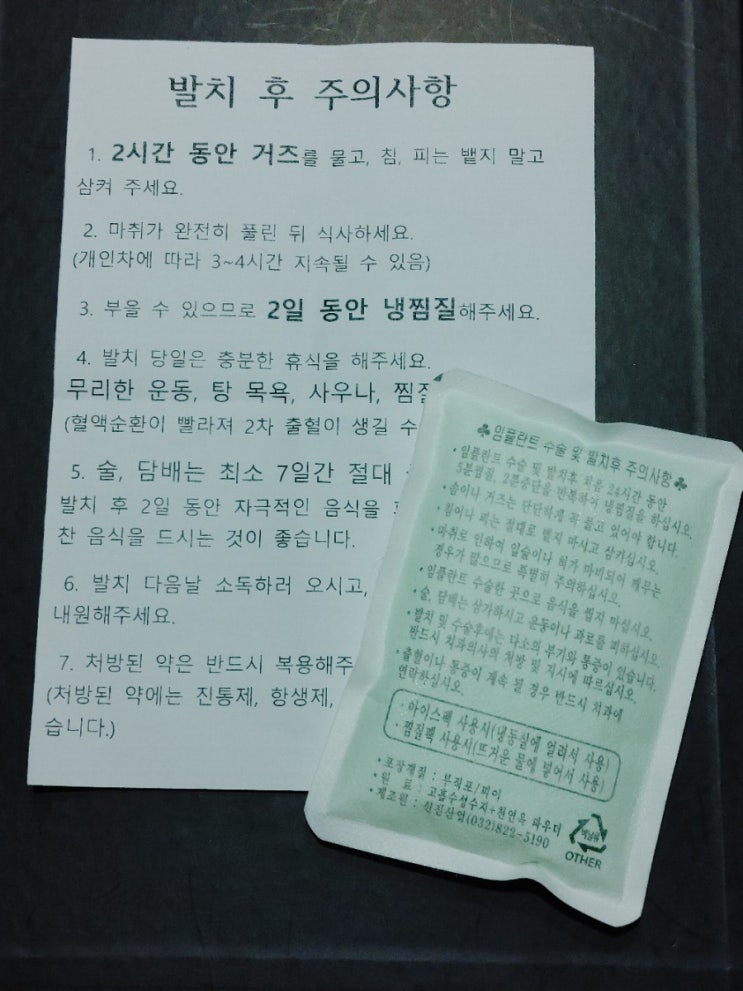 발치 후 주의사항
1. 2시간 동안 거즈를 물고, 침, 피는 뱉지 말고
삼켜 주세요.
2. 마취가 완전히 풀린 뒤 식사하세요.
(개인차에 따라 3~4시간 지속될 수 있음)
3. 부을 수 있으므로 2일 동안 냉찜질해주세요.
4. 발치 당일은 충분한 휴식을 해주세요.
무리한 운동, 탕 목욕, 사우나,
(혈액순환이 빨라져 2차 출혈이 생길 수
5. 술, 담배는 최소 7일간 절대
발치 후 2일 동안 자극적인 음식을
찬 음식을 드시는 것이 좋습니다.
6. 발치 다음날 소독하러 오시고,
내원해주세요.
7. 처방된 약은 반드시 복용해주
(처방된 약에는 진통제, 항생제,
습니다.)
♣임플란트 수술 및 발치후 주의사항♣
·임플란트 수술 및 발치후 처음 24시간 동안
5분찜질, 2분중단을 반복하여 냉찜질을 하십시오.
·솜이나 거즈는 단단하게 꼭 물고 있어야 합니다.
·침이나 피는 절대로 뱉지 마시고 삼키십시오.
·마취로 인하여 입술이나 혀가 마비되어 깨무는
경우가 많으므로 특별히 주의하십시오.
·임플란트 수술한 곳으로 음식을 씹지 마십시오.
·술, 담배는 삼가하시고 운동이나 과로를 피하십시오.
·발치 및 수술후에는 다소의 부기와 통증이 있습니다.
반드시 치과의사의 처방 및 지시에 따르십시오.
·출혈이나 통증이 계속 될 경우 반드시 치과에
연락하십시오.
·아이스팩 사용시(냉동실에 얼려서 사용)
·찜질팩 사용시(뜨거운 물에 넣어서 사용)
·포장재질 : 부직포/피이
·원 료 : 고흡수성수지+천연옥 파우더
·제조원 : 현진산업(032)822-5190
비닐류
OTHER